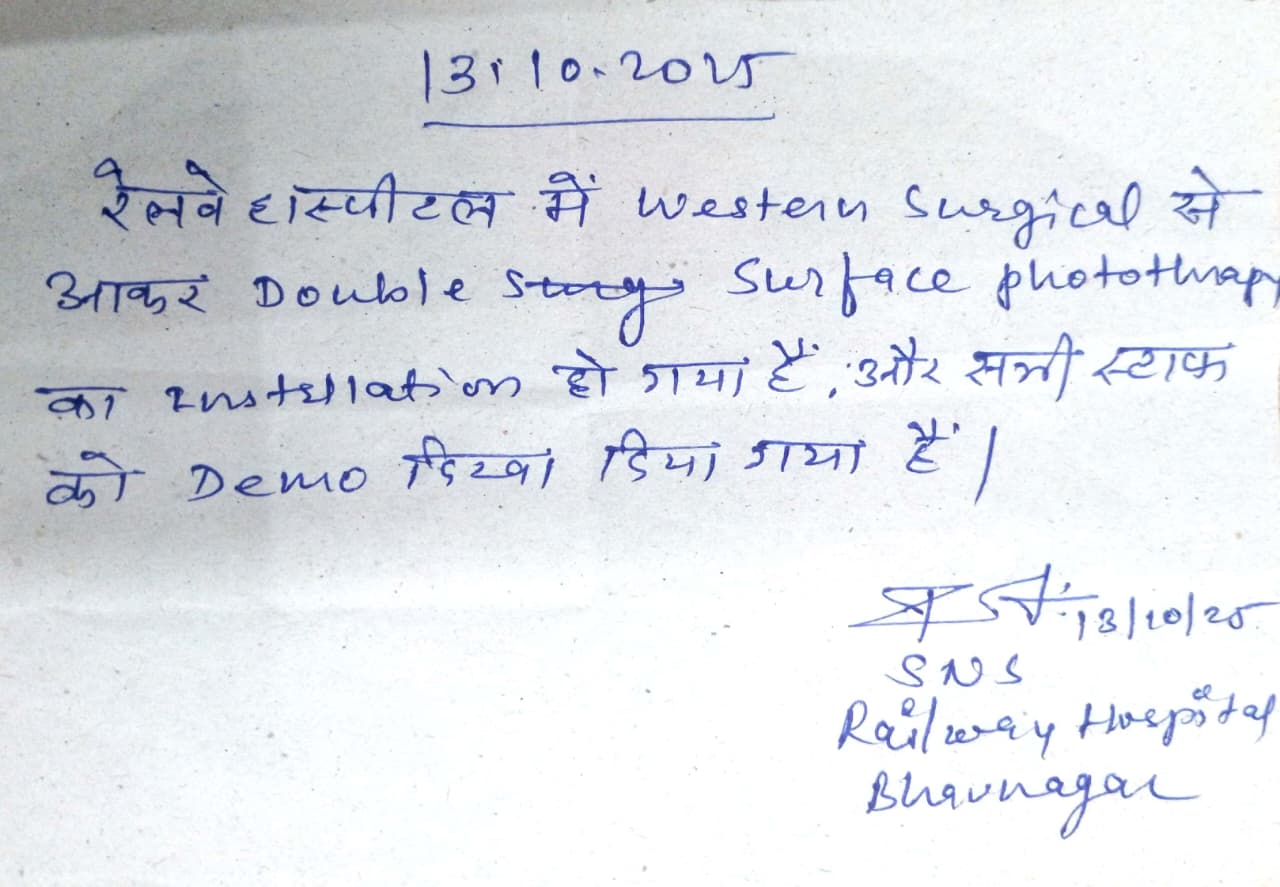 13.10.2025
रेलवे हास्पीटल में Western Surgical से
आकर Double Surface photothrapy
का installation हो गया हैं, और सभी स्टाफ
को Demo दिखा दिया गया हैं|
13/10/25
SNS
Railway Hospital
Bhavnagar